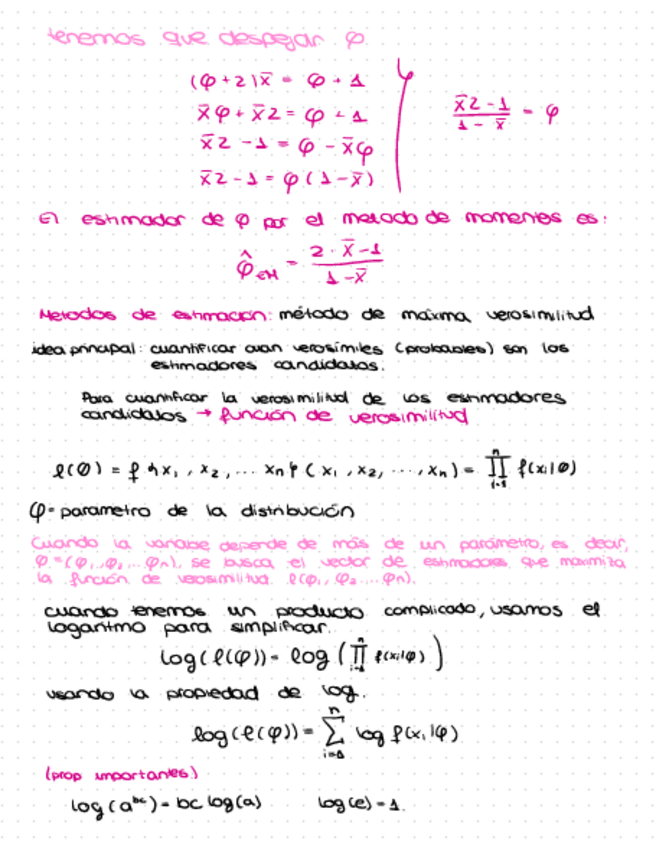 tenemos que despejar φ
(φ+2)x̄ = φ + 1
x̄φ + x̄2 = φ + 1
x̄2 - 1 = φ - x̄φ
x̄2 - 1 = φ(1-x̄)
(x̄2 - 1)/(1 - x̄) = φ
El estimador de φ por el metodo de momentos es:
φ̂_EM = (2·x̄-1)/(1-x̄)
Metodos de estimacion: método de máxima verosimilitud
idea principal: cuantificar cuan verosímiles (probables) son los
estimadores candidatos.
Para cuantificar la verosimilitud de los estimadores
candidatos → función de verosimilitud
ℓ(∅) = f{x₁, x₂, ... xn}(x₁, x₂, ..., xn) = ∏ⁿᵢ₌₁ f(xi|∅)
φ = parametro de la distribución
Cuando la variable depende de más de un parámetro, es decir,
φ=(φ₁,φ₂...φn), se busca el vector de estimadores que maximiza
la función de verosimilitud ℓ(φ₁, φ₂...φn).
cuando tenemos un producto complicado, usamos el
logaritmo para simplificar.
log(ℓ(φ)) = log(∏ⁿᵢ₌₁ f(xi|φ))
usando la propiedad de log.
log(ℓ(φ)) = ∑ⁿᵢ₌₁ log f(xi|φ)
(prop importantes)
log(a^bc) = bc log(a) log(e) = 1.